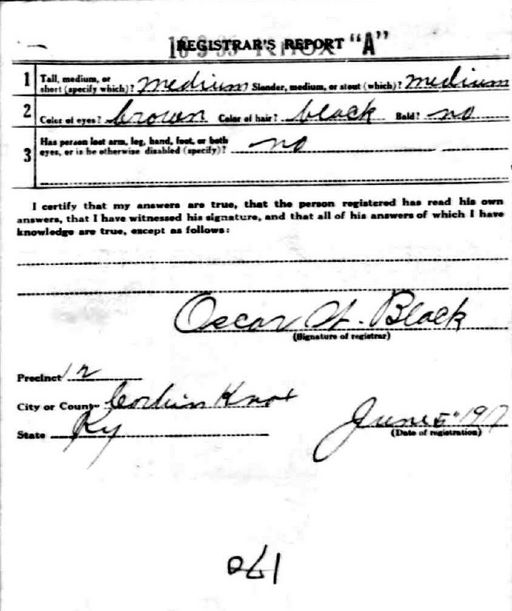 REGISTRAR'S REPORT "A"
1 Tall, medium, or short (specify which)? medium Slender, medium, or stout (which)? medium
2 Color of eyes? brown Color of hair? black Bald? no
3 Has person lost arm, leg, hand, foot, or both eyes, or is he otherwise disabled (specify)? no
I certify that my answers are true, that the person registered has read his own
answers, that I have witnessed his signature, and that all of his answers of which I have
knowledge are true, except as follows:
Oscar W. Black
(Signature of registrar)
Precinct 12
City or County Corbin Knox
State Ky
June 5" 1917
(Date of registration)
170